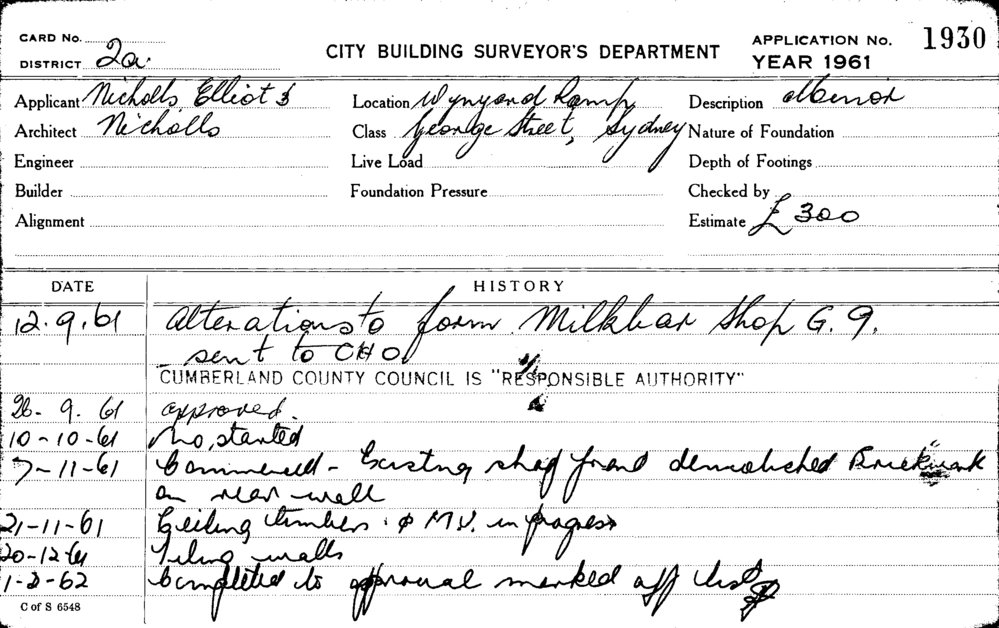 CARD No.
DISTRICT 2a.
CITY BUILDING SURVEYOR'S DEPARTMENT
APPLICATION No. 1930
YEAR 1961
Applicant Nicholls, Elliot &
Architect Nicholls
Engineer
Builder
Alignment
Location Wynyard Ramp,
Class George Street, Sydney
Live Load
Foundation Pressure
Description Minor
Nature of Foundation
Depth of Footings
Checked by
Estimate £ 300
DATE HISTORY
12.9.61 Alterations to form Milkbar Shop G.9.
sent to CHO
CUMBERLAND COUNTY COUNCIL IS "RESPONSIBLE AUTHORITY"
26.9.61 approved.
10-10-61 No, started
7-11-61 Commenced - Existing shop front demolished Brickwork
on rear wall
21-11-61 Ceiling timbers in progress
20-12-61 Tiling walls
1-2-62 Completed to approval marked off list
C of S 6548